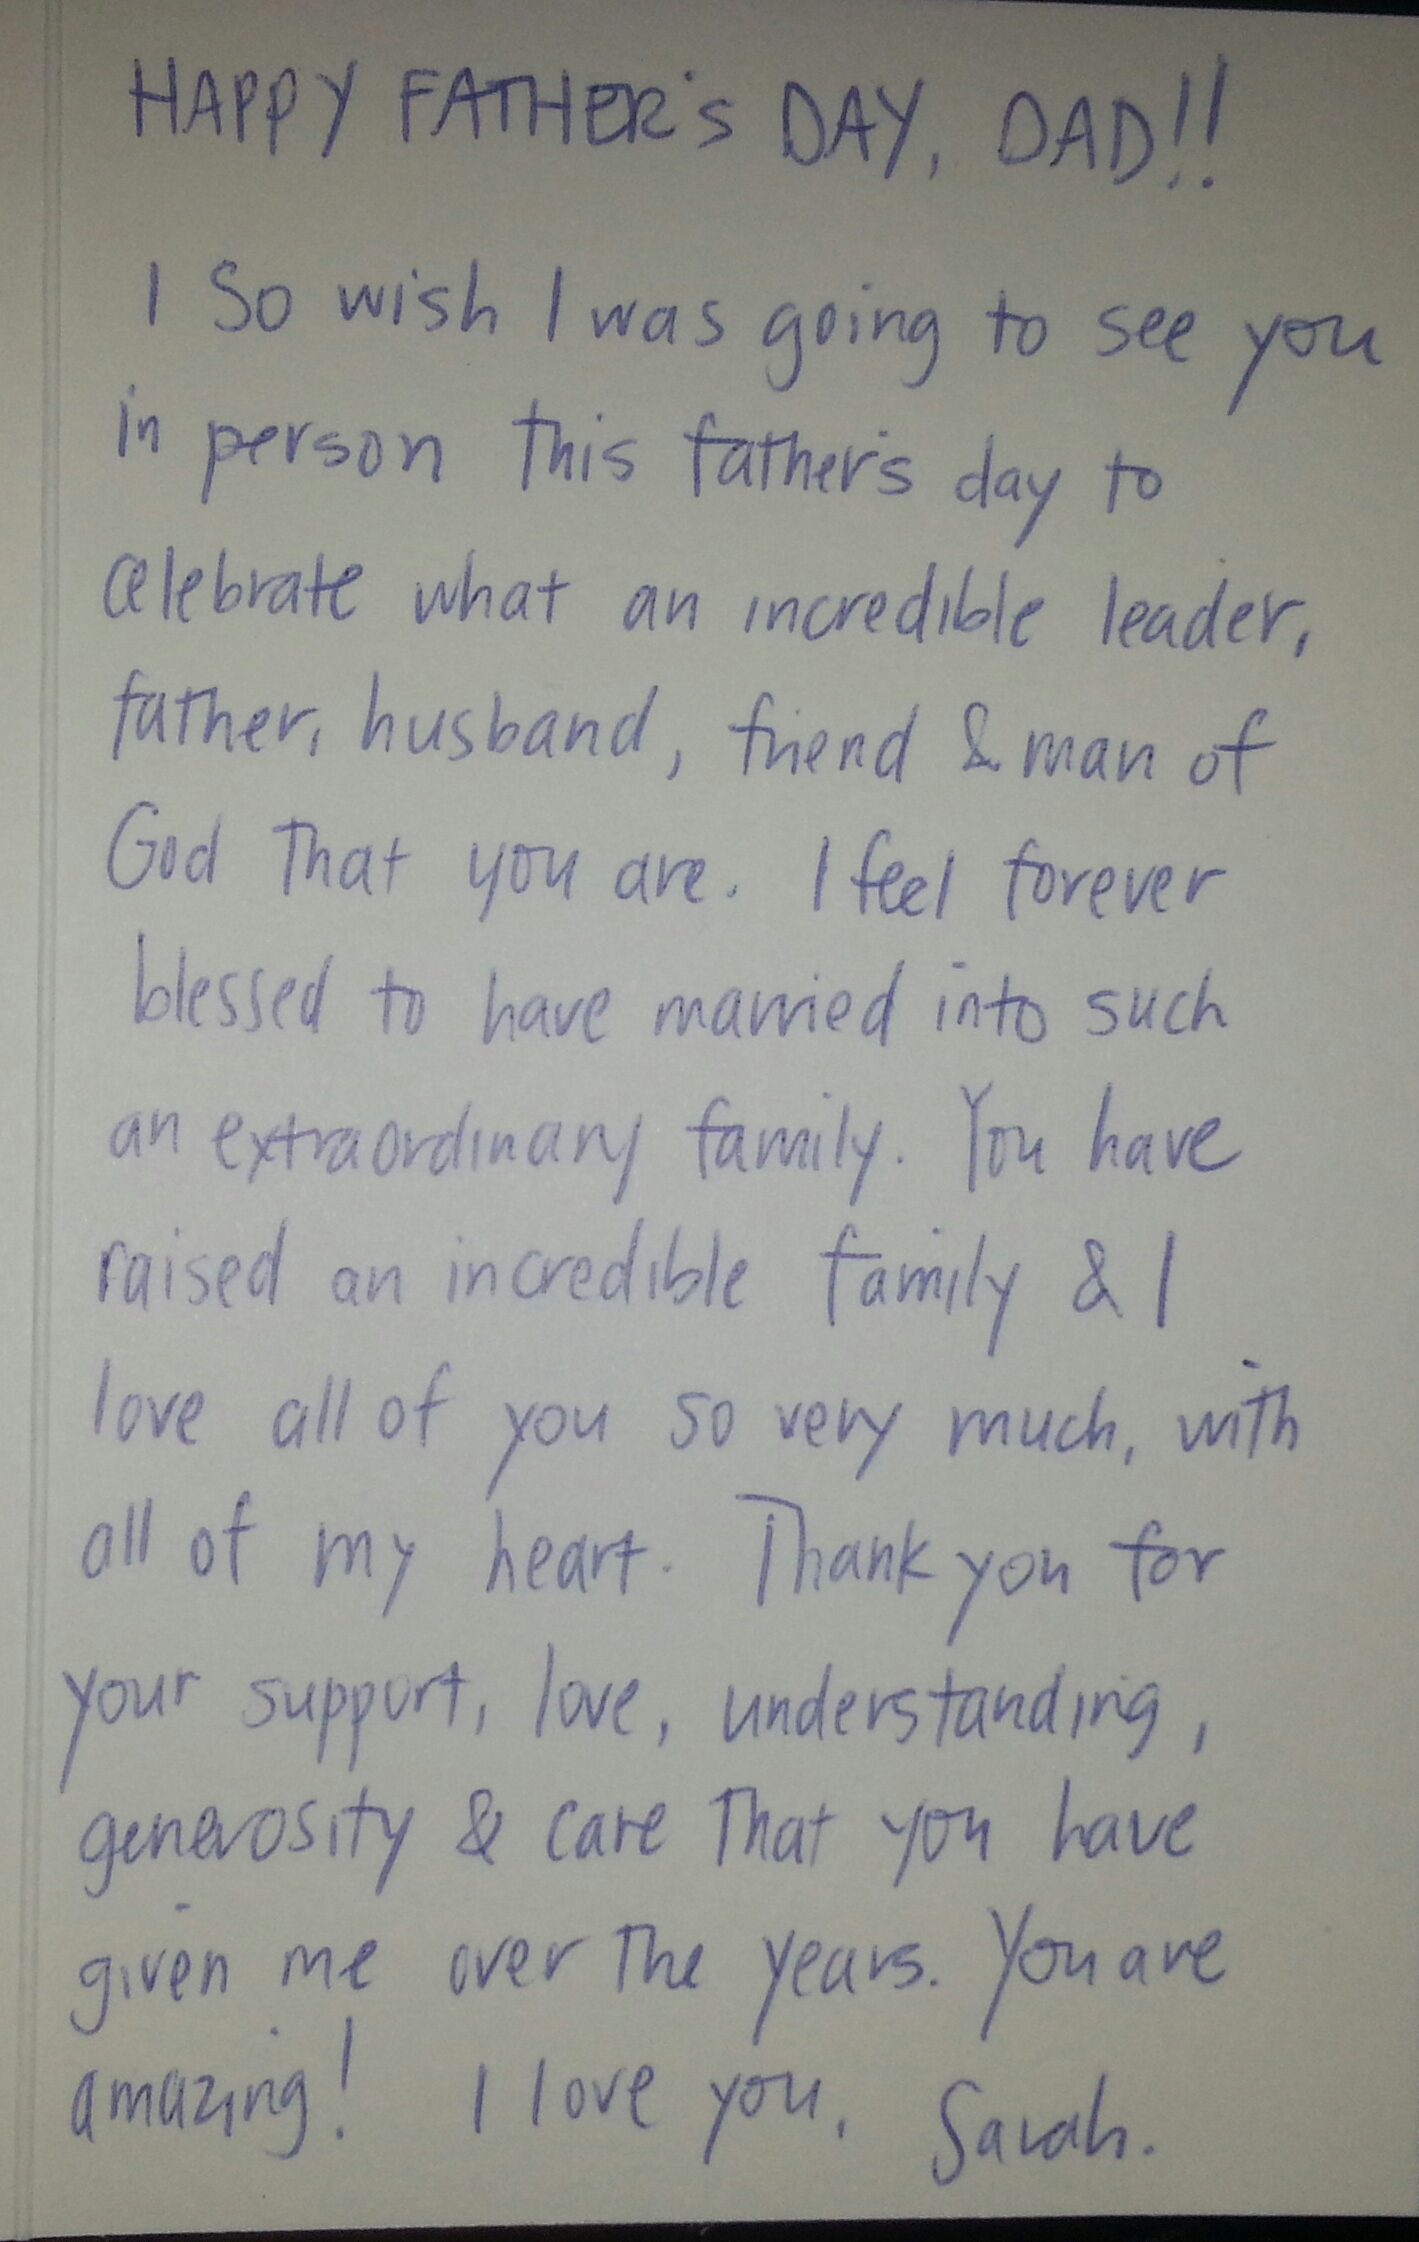 HAPPY FATHER's DAY, DAD!!
I So wish I was going to see you
in person this father's day to
celebrate what an incredible leader,
father, husband, friend & man of
God That you are. I feel forever
blessed to have married into such
an extraordinary family. You have
raised an incredible family & I
love all of you so very much, with
all of my heart. Thank you for
your support, love, understanding,
generosity & care That you have
given me over The years. You are
amazing! I love you, Sarah.